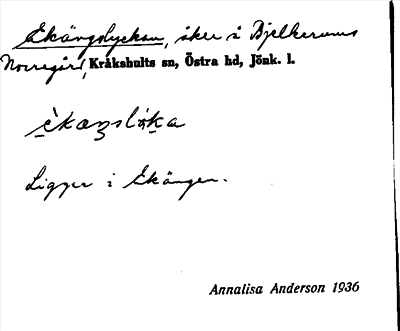 Ekängslyckan, åker å Bjelkerums
Norregård, Kråkshults sn, Östra hd, Jönk. l.
Ligger i Ekängen.
Annalisa Anderson 1936